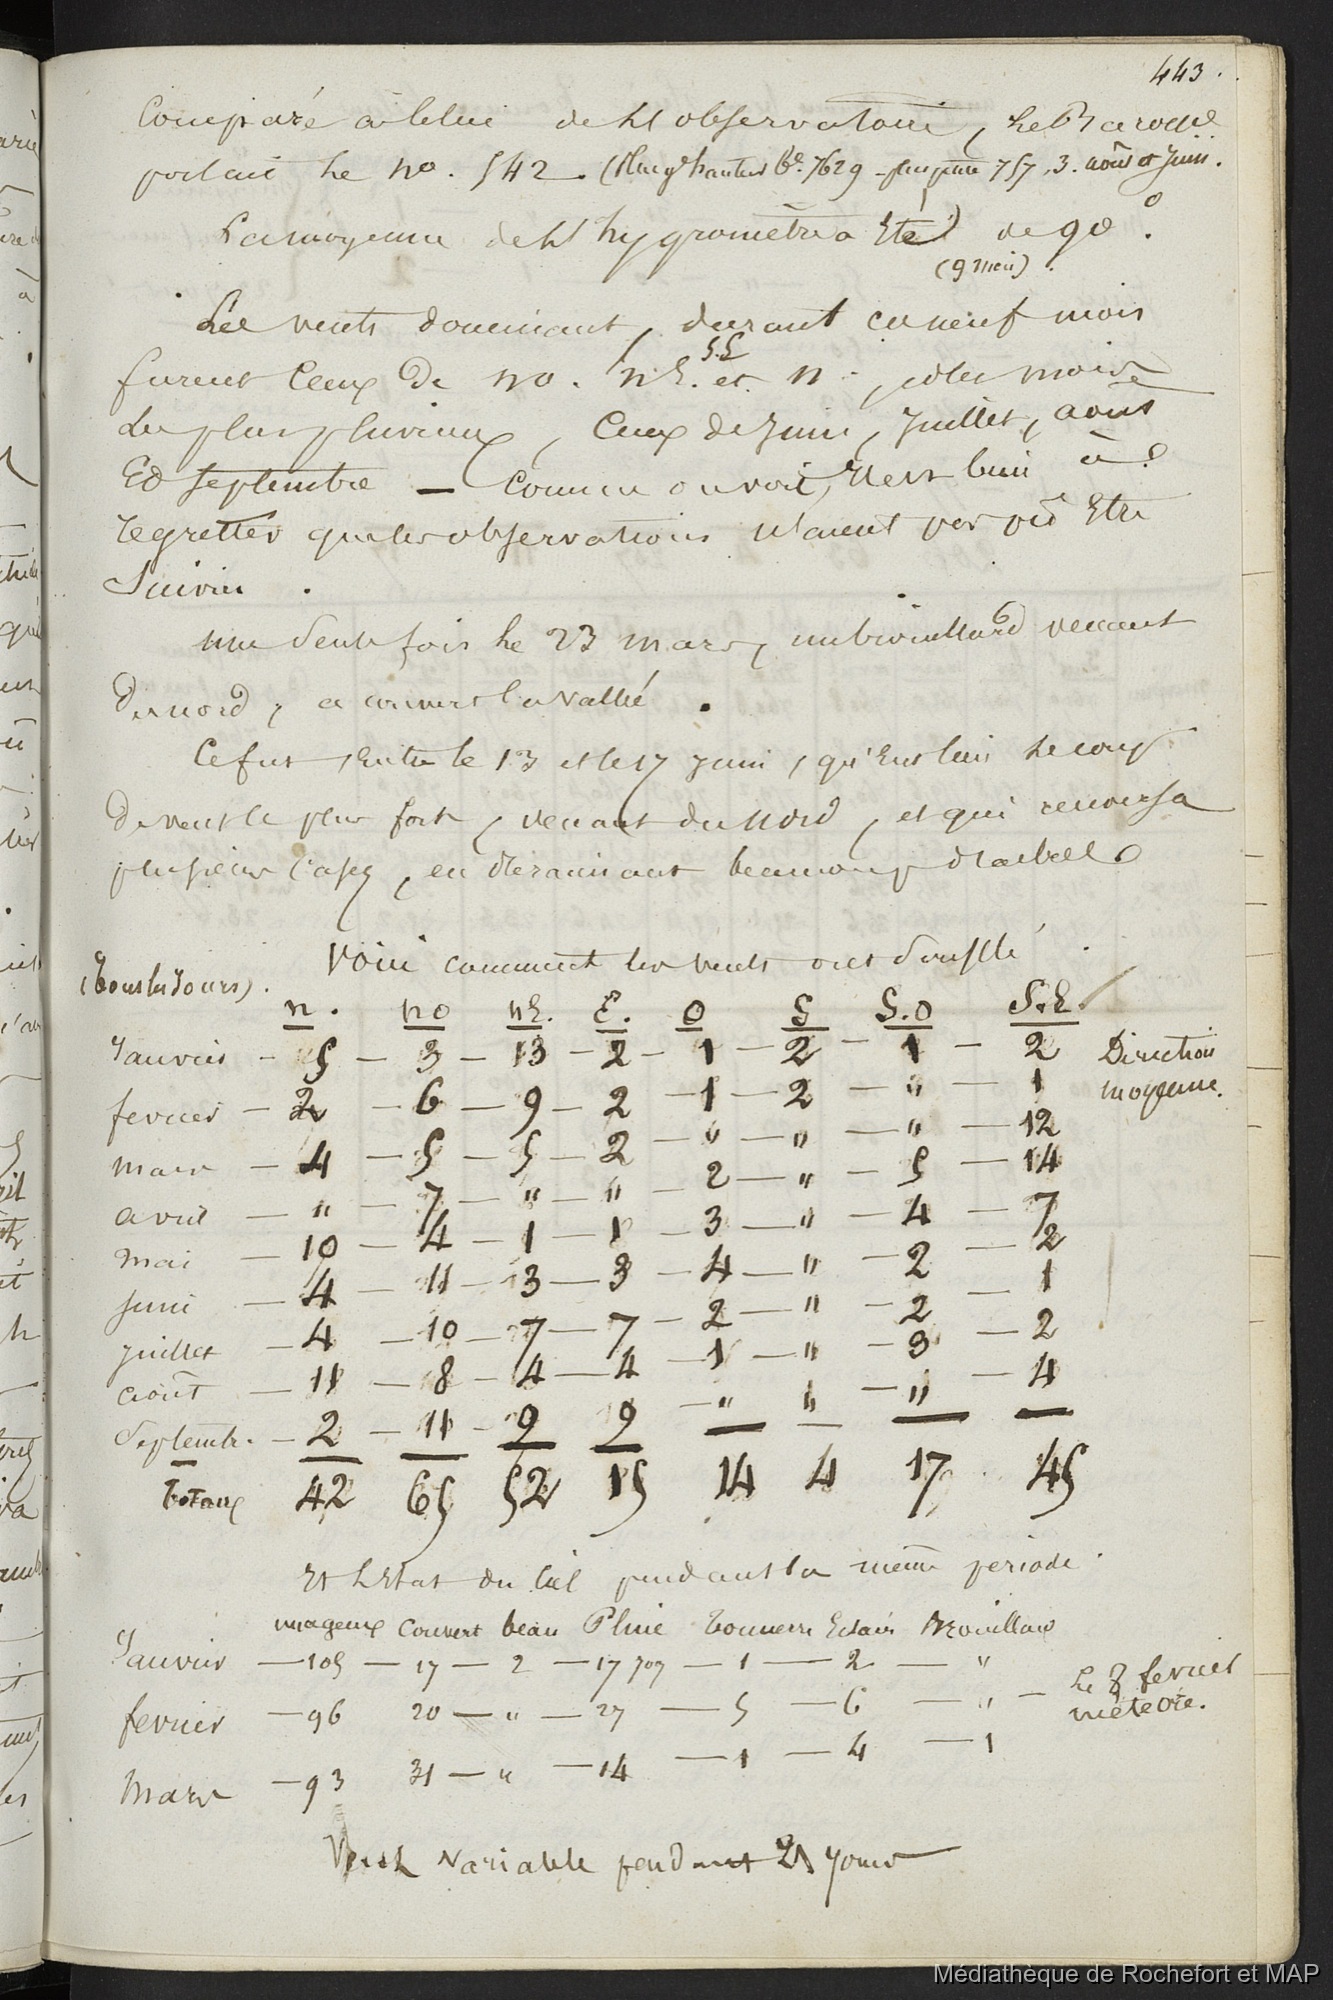 443.
Comparé à celui de l'observatoire, le Baromè
portait le no. 542. (Plus gde hauteur Bé. 7629 - plus petite 757,3. août et Juin.
La moyenne de l'hygromètre a Été de 90°.
(9 mois).
Les vents dominant, durant ces neuf mois
furent Ceux de no. nE. S.E et n., et les mois
les plus pluvieux, Ceux de Juin, Juillet, août
Et Septembre — Comme on voit, Il est bien à
regretter que les observations n'aient pas pu Etre
Suivies.
une Seule fois le 23 mars, un brouillard venant
du nord, a couvert la vallée.
Ce fut, Entre le 13 et le 17 juin, qu'Eut lieu le coup
de vent le plus fort, venant du nord, et qui renversa
plusieurs Cases, en déracinant beaucoup d'arbres
Voici comment les vents ont Soufflé
(tous les Jours).
n. no nE. E. O S S.O S.E.
Janvier — 5 — 3 — 13 — 2 — 1 — 2 — 1 — 2 Direction
moyenne.
fevrier — 2 — 6 — 9 — 2 — 1 — 2 — " — 1
mars — 4 — 5 — 5 — 2 — " — " — " — 12
avril — " — 7 — " — " — 2 — " — 5 — 14
mai — 10 — 4 — 1 — 1 — 3 — " — 4 — 7
Juin — 4 — 11 — 3 — 3 — 4 — " — 2 — 2
juillet — 4 — 10 — 7 — 7 — 2 — " — 2 — 1
août — 11 — 8 — 4 — 4 — 1 — " — 3 — 2
Septembr. — 2 — 11 — 9 — 9 — " " — " — 4
totaux 42 65 52 15 14 4 17 45
Et l'Etat du Ciel pendant la même periode.
nuageux Couvert beau Pluie tonnerre Eclairs Brouillard
Janvier — 105 — 17 — 2 — 17 jours — 1 — 2 — "
fevrier — 96 20 — " — 27 — 5 — 6 — " — Le 8 fevrier
météore.
Mars — 93 31 — " — 14 — 1 — 4 — 1
Vents Variable pendant 21 jours